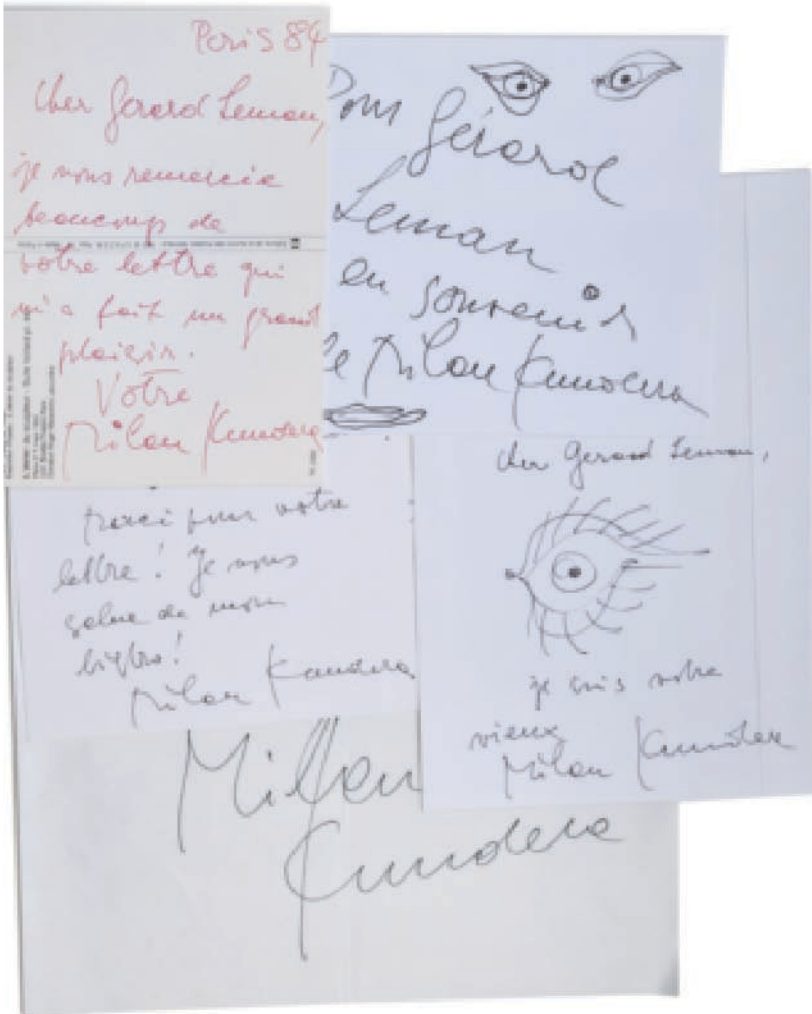 Paris 84
Cher Gerard Leman,
je vous remercie
beaucoup de
votre lettre qui
m'a fait un grand
plaisir.
Votre
Milan Kundera
Pour Gérard
Leman
en souvenir
de Milan Kundera
Merci pour votre
lettre! Je vous
salue de mon
bistro!
Milan Kundera
Cher Gerard Leman,
je suis votre
vieux
Milan Kundera
Milan
Kundera